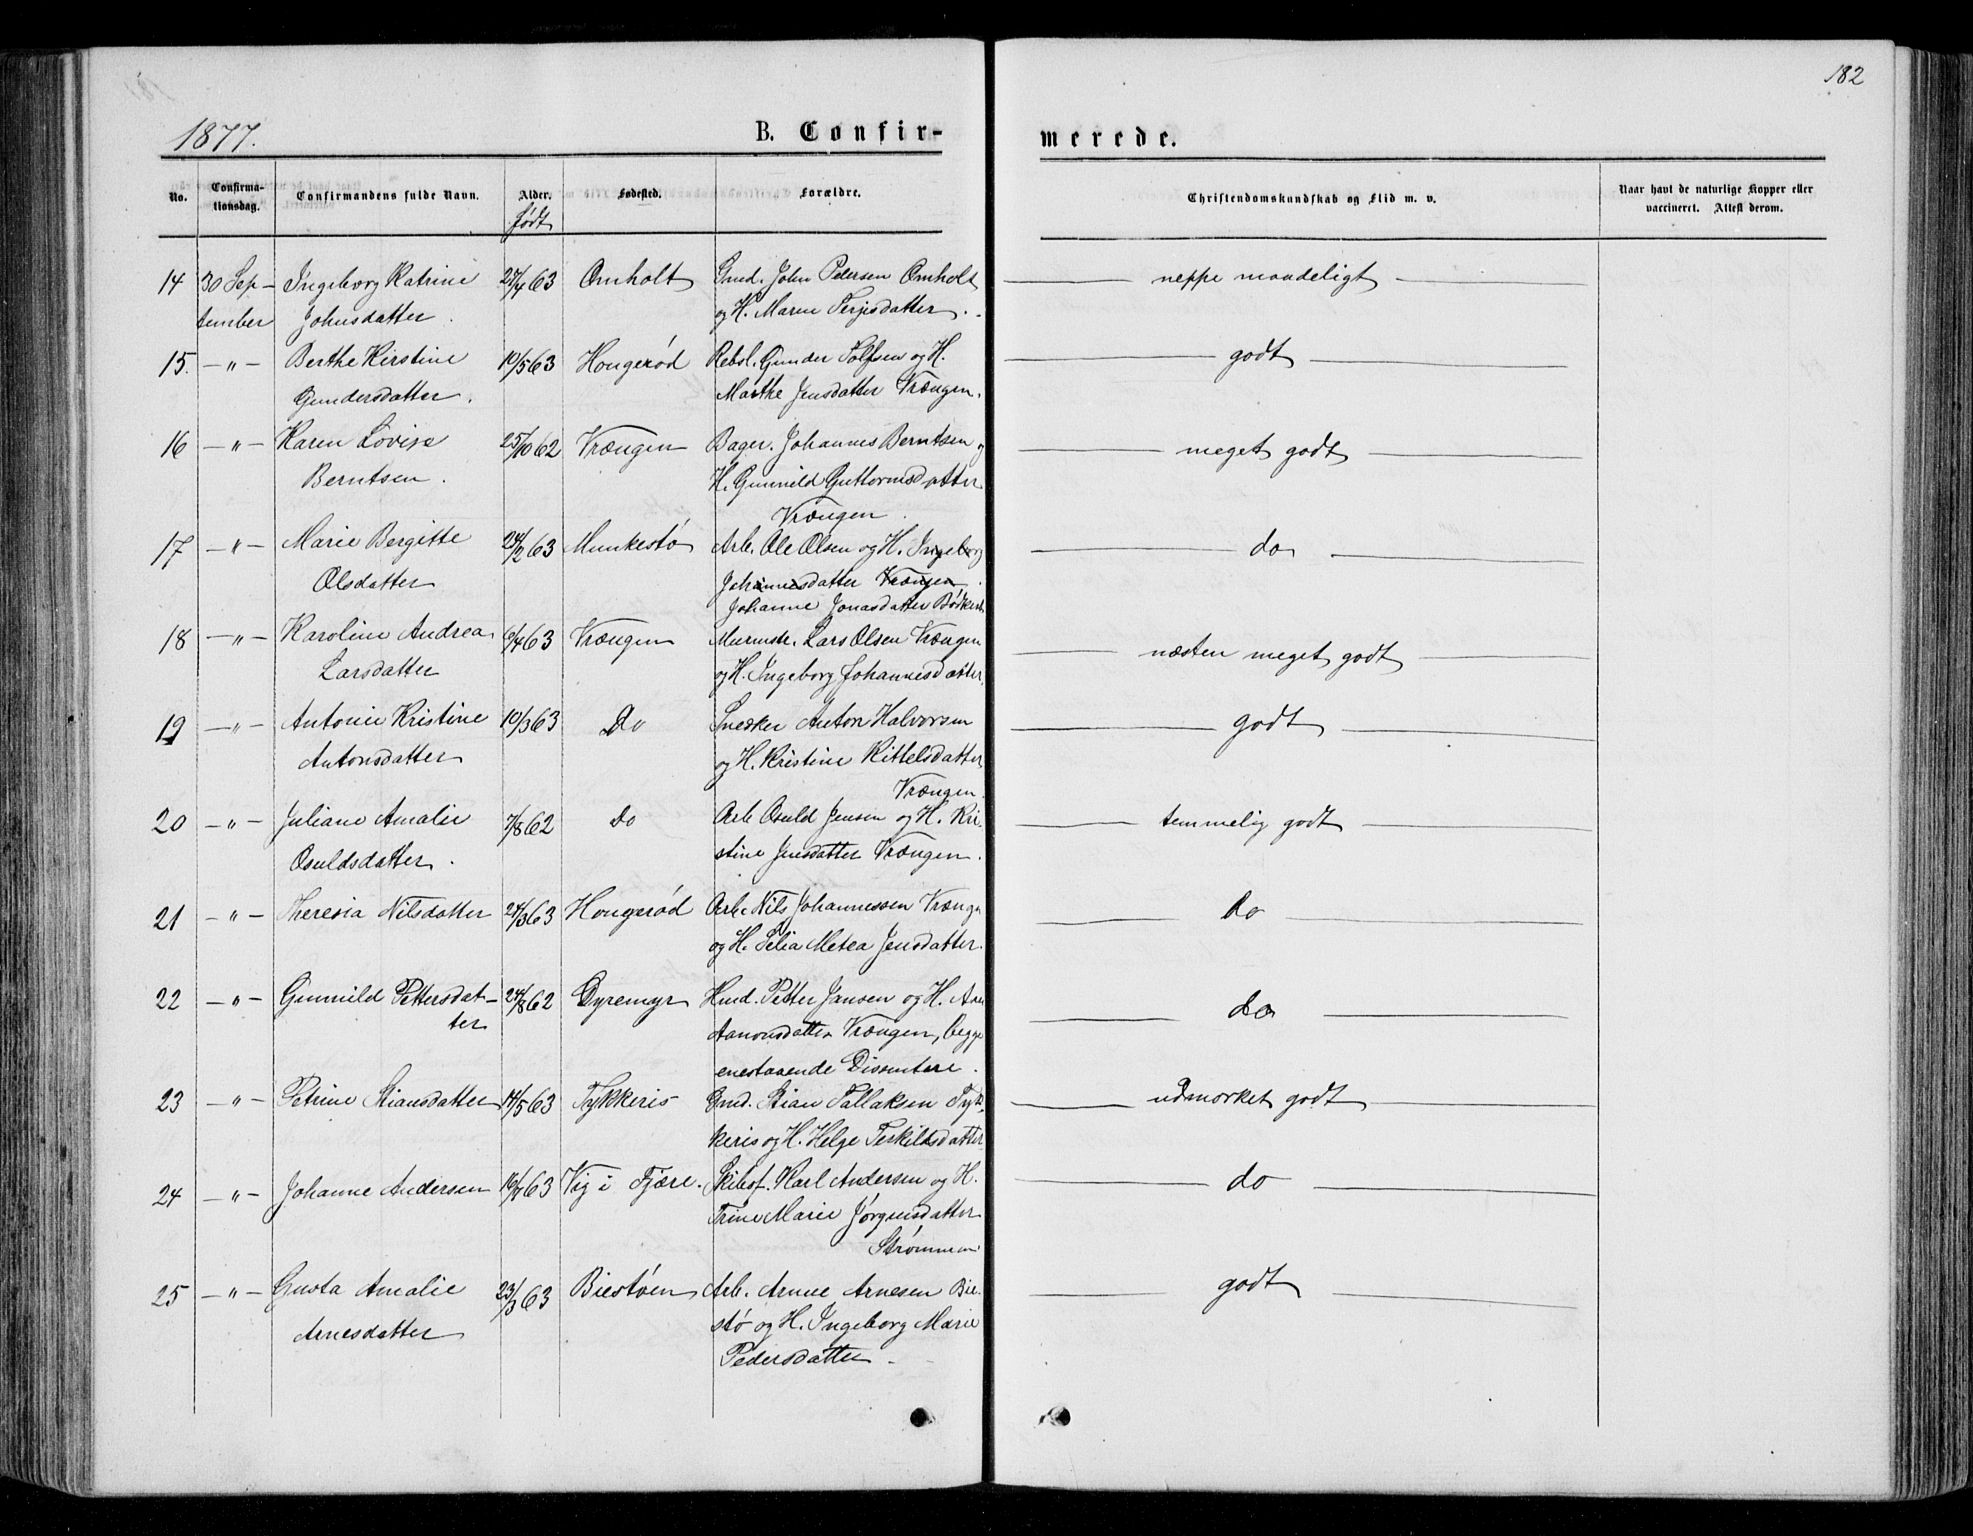 182
1877.
B. Confir-
merede.
No.
Confirma-
tionsdag.
Confirmandens fulde Navn.
Alder.
født
Fødested.
Forældre.
Christendomskundskab og Flid m. v.
Naar havt de naturlige Kopper eller
vaccineret. Attest derom.
14 30 Sep- Ingeborg Katrine 27/4 63 Omholt Gmd. John Pedersen Omholt neppe maadeligt
tember Johnsdatter. og H. Maren Terjesdatter.
15. -"- Berthe Kirstine 10/5 63 Hougerød Rebsl. Gunder Tolfsen og H. godt
Gundersdatter. Marthe Jensdatter Vrængen.
16 -"- Karen Lovise 25/10 62 Vrængen Bager. Johannes Berntsen og meget godt
Berntsen. H. Gunnild Guttormsdatter
Vrængen.
17 -"- Marie Bergitte 24/2 63 Munkestø Arb. Ole Olsen og H. Ingeborg do
Olsdatter Johannesdatter Vrængen.
Johanne Jonasdatter
18 -"- Karoline Andrea 6/4 63 Vrængen Murmstr. Lars Olsen Vrængen næsten meget godt
Larsdatter og H. Ingeborg Johannesdatter.
19 -"- Antonie Kristine 10/3 63 Do Snedker Anton Halvorsen godt
Antonsdatter og H. Kristine Kittelsdatter
Vrængen.
20 -"- Juliane Amalie 7/8 62 Do Arb. Osuld Jensen og H. Kri- temmelig godt
Osuldsdatter. stine Jensdatter Vrængen.
21 -"- Theresia Nilsdatter 24/3 63 Hougerød Arb. Nils Johannessen Vrængen do
og H. Silia Metea Jensdatter.
22 -"- Gunnild Pettersdat- 24/8 62 Dyremyr Hmd. Petter Jansen og H. do
ter Aanonsdatter Vrængen, begge
enestaaende Dissentere.
23 -"- Petrine Stiansdatter 14/5 63 Tykkeris Gmd. Stian Tallaksen Tyk- udmærket godt
keris og H. Helge Terkildsdatter
24 -"- Johanne Andersen 63 Vig i Fjære. Skibsf. Karl Andersen og H. do
Trine Marie Jørgensdatter
Strømmen.
25 -"- Gusta Amalie 23/3 63 Biestøen Arb. Arne Arnesen Bie- godt
Arnesdatter stø og H. Ingeborg Marie
Pedersdatter.